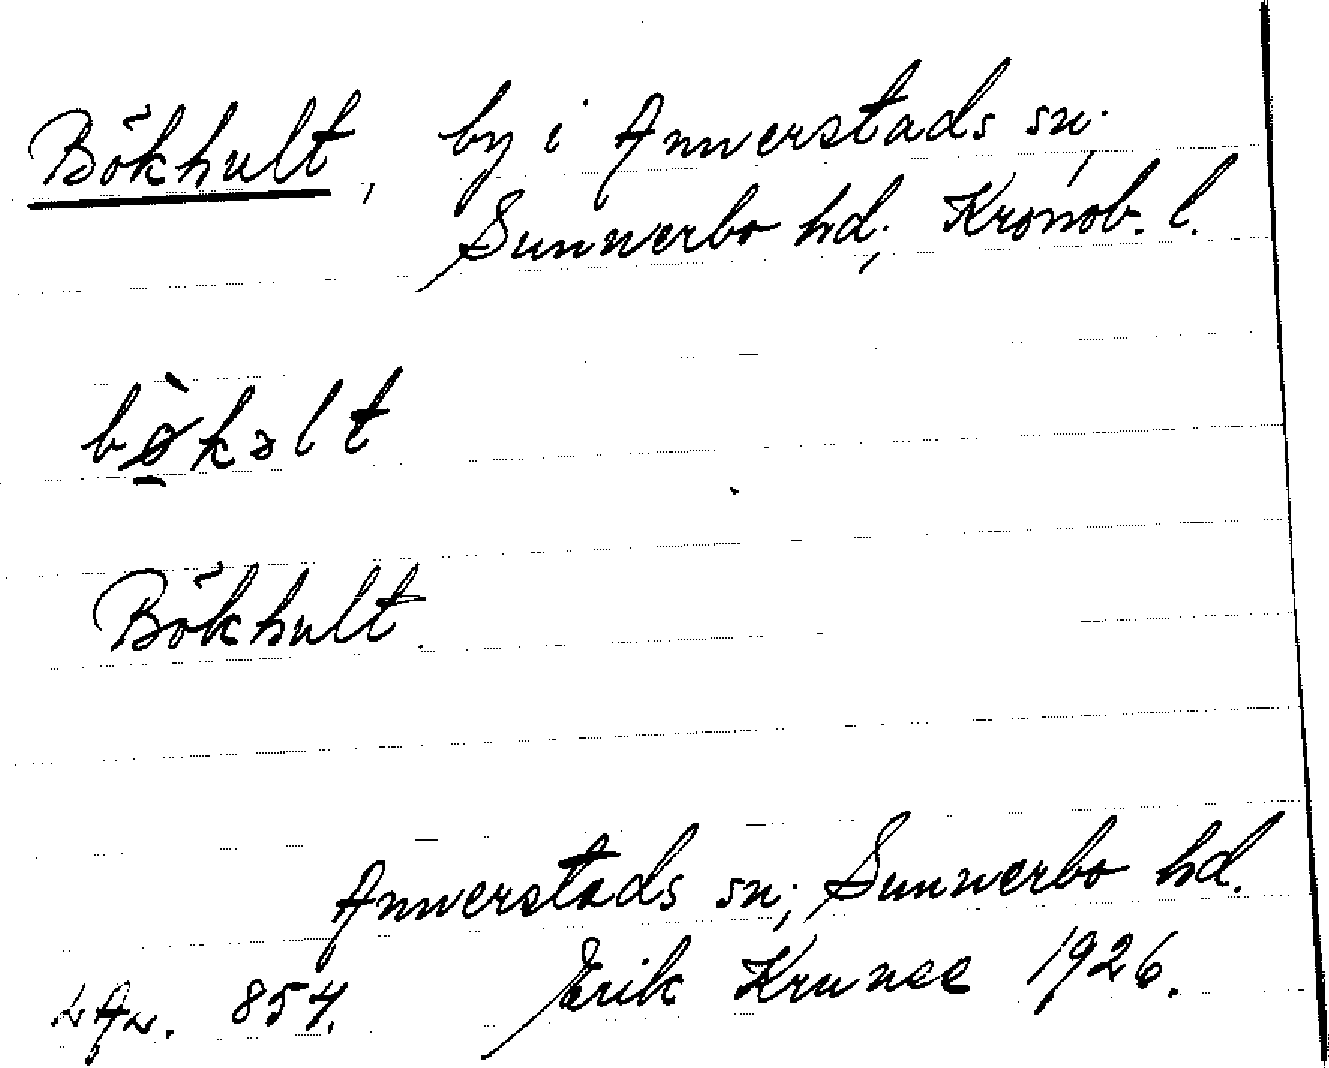 Bökhult, by i Annerstads sn.,
Sunnerbo hd., Kronob. l.
bø̠̀kəlt
Bökhult.
Annerstads sn., Sunnerbo hd.
854. Erik Kruuse 1926.